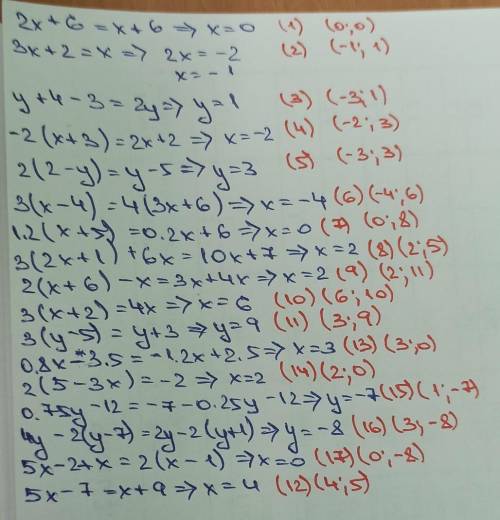 2x+6 = x+6 => x=0 (1) (0;0)
3x+2=x => 2x=-2 (2) (-1; 1)
x=-1
y+4-3=2y => y=1 (3) (-3;1)
-2(x+3)=2x+2 => x=-2 (4) (-2;3)
2(2-y)=y-5 => y=3 (5) (-3;3)
3(x-4)=4(3x+6) => x=-4 (6) (-4;6)
1.2(x+5)=0.2x+6 => x=0 (7) (0;8)
3(2x+1)+6x=10x+7 => x=2 (8) (2;5)
2(x+6)-x=3x+4x => x=2 (9) (2;11)
3(x+2)=4x => x=6 (10) (6;10)
3(y-5)=y+3 => y=9 (11) (3;9)
0.8x-3.5=-1.2x+2.5 => x=3 (13) (3;0)
2(5-3x)=-2 => x=2 (14) (2;0)
0.75y-12=-7-0.25y-12 => y=-7 (15) (1;-7)
y-2(y-7)=2y-2(y+1) => y=-8 (16) (3;-8)
5x-2+x=2(x-1) => x=0 (17) (0;-8)
5x-7=x+9 => x=4 (12) (4;5)